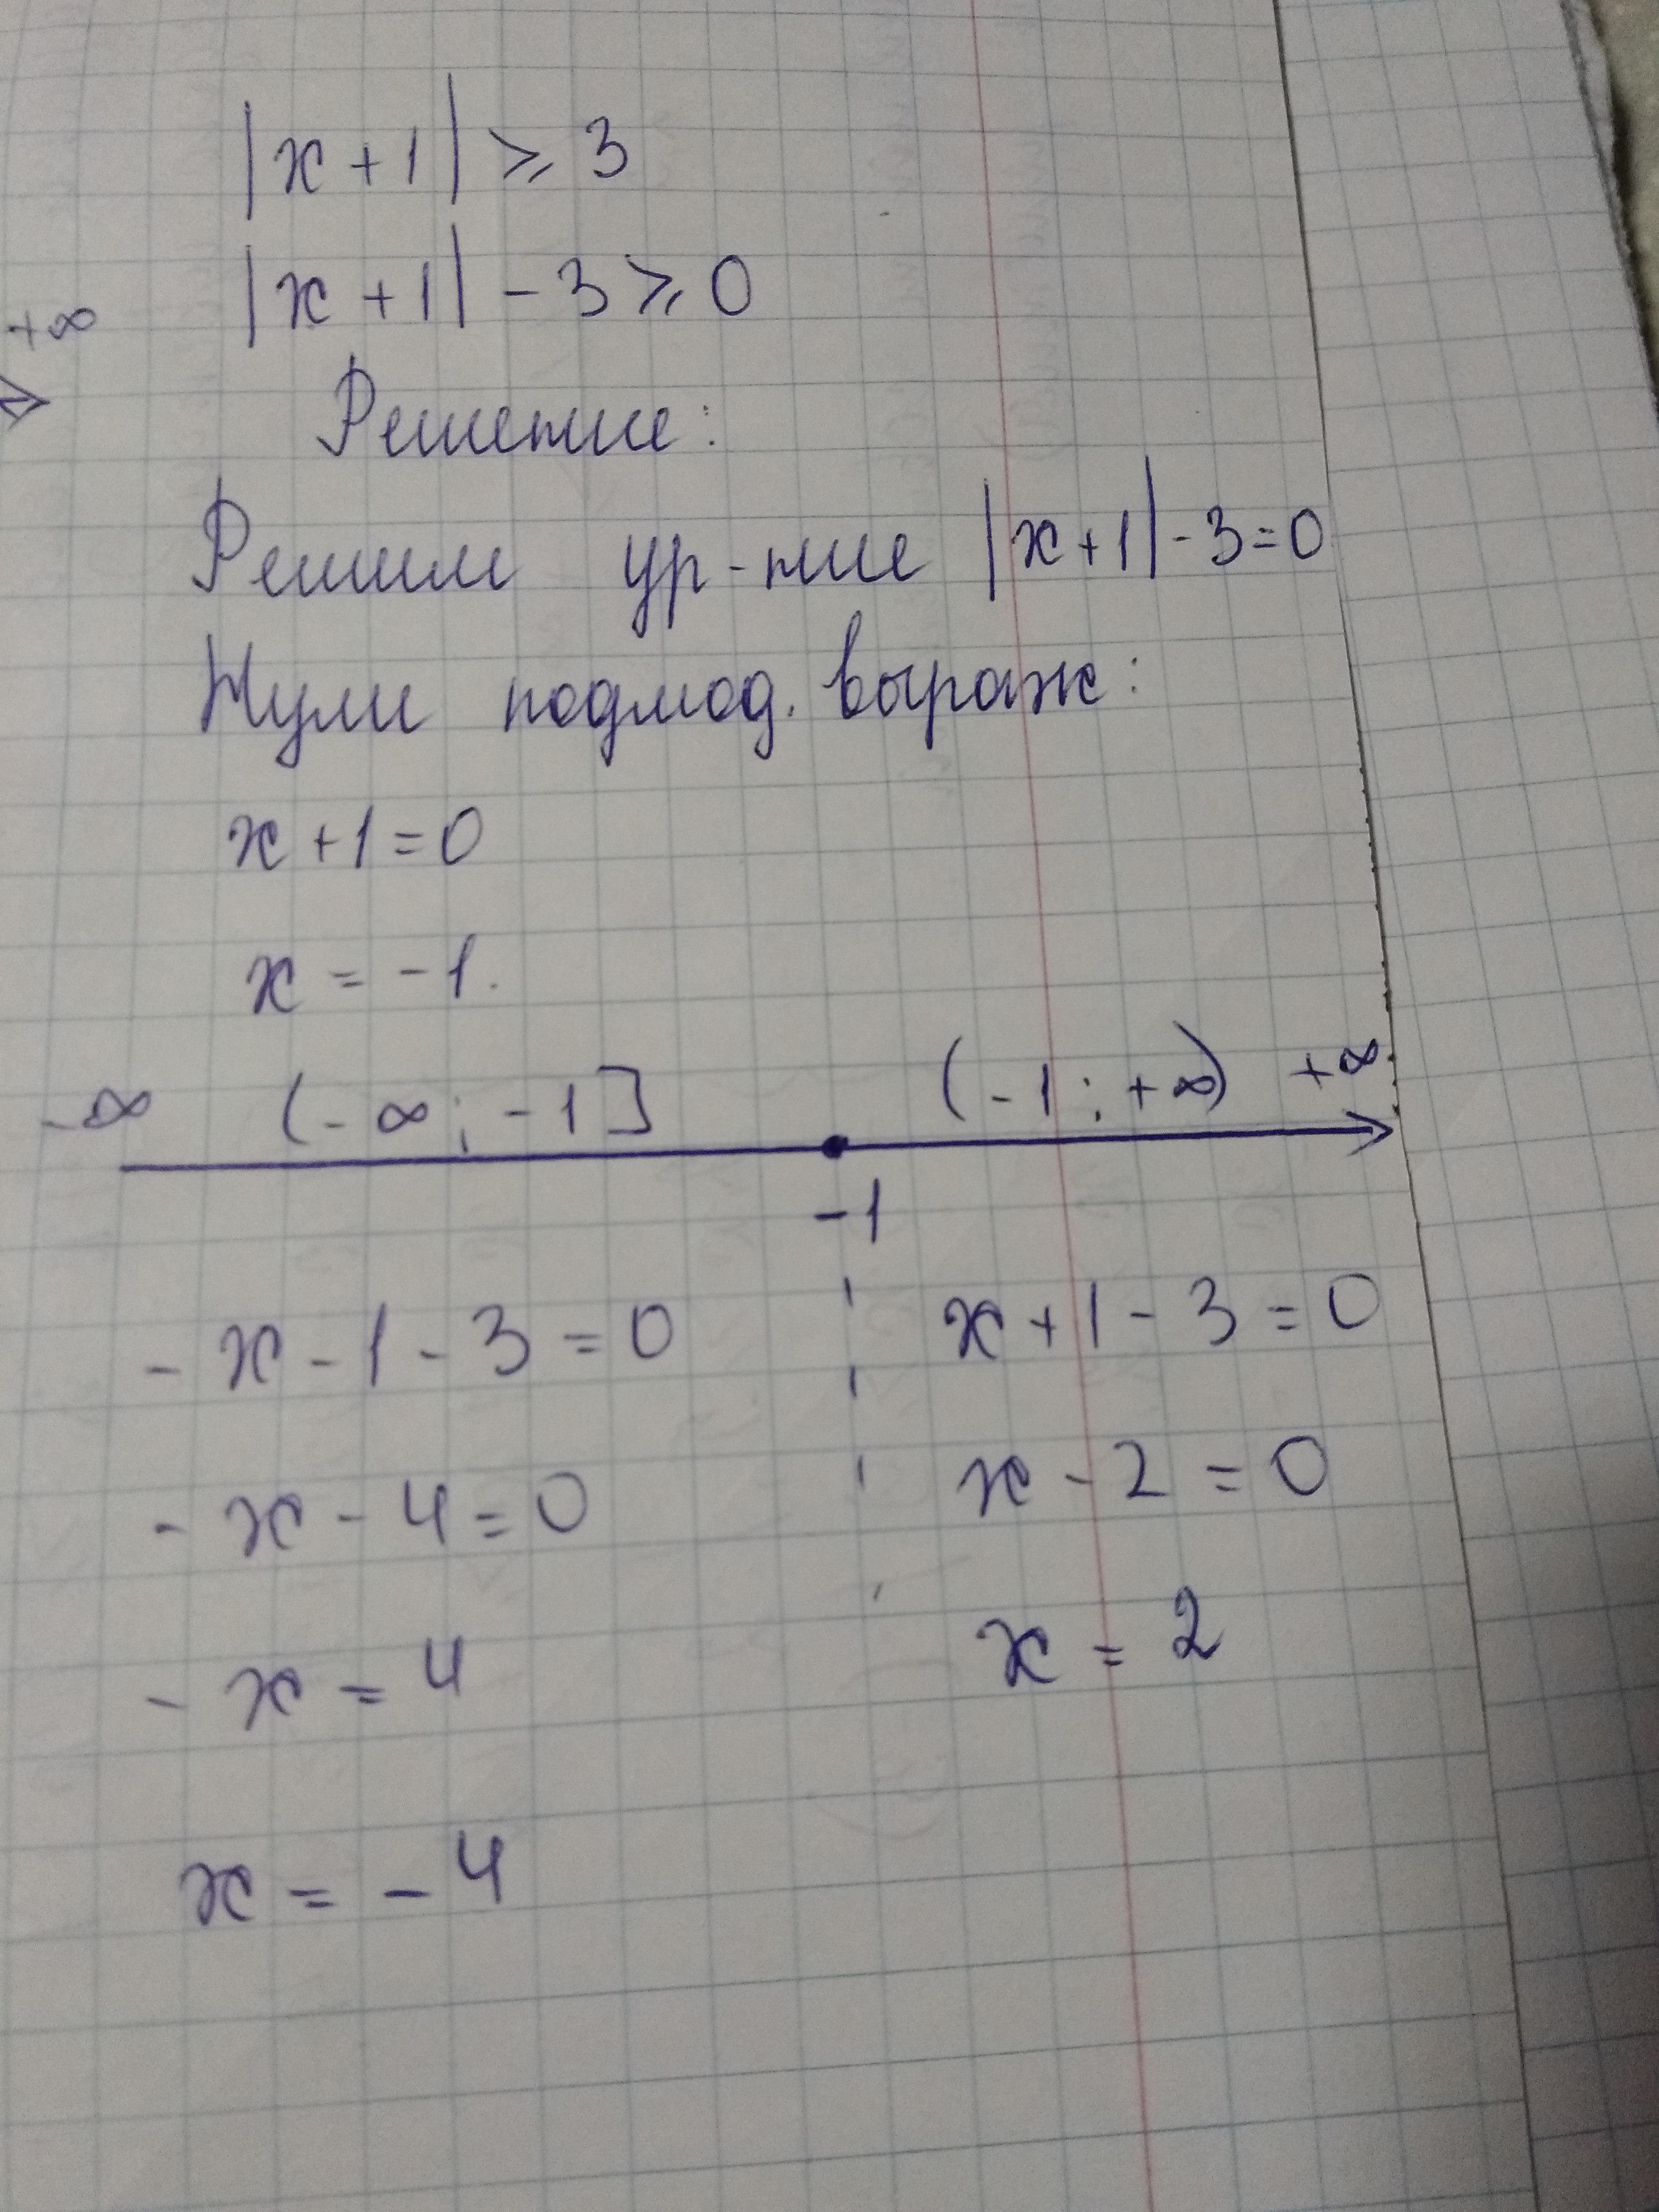 |x+1|⩾3
|x+1|-3⩾0
+∞
Решение:
Решим ур-ние |x+1|-3=0
Нули подмод. выраж:
x+1=0
x=-1.
-∞ (-∞; -1] (-1; +∞) +∞
-1
-x-1-3=0 x+1-3=0
-x-4=0 x-2=0
-x=4 x=2
x=-4